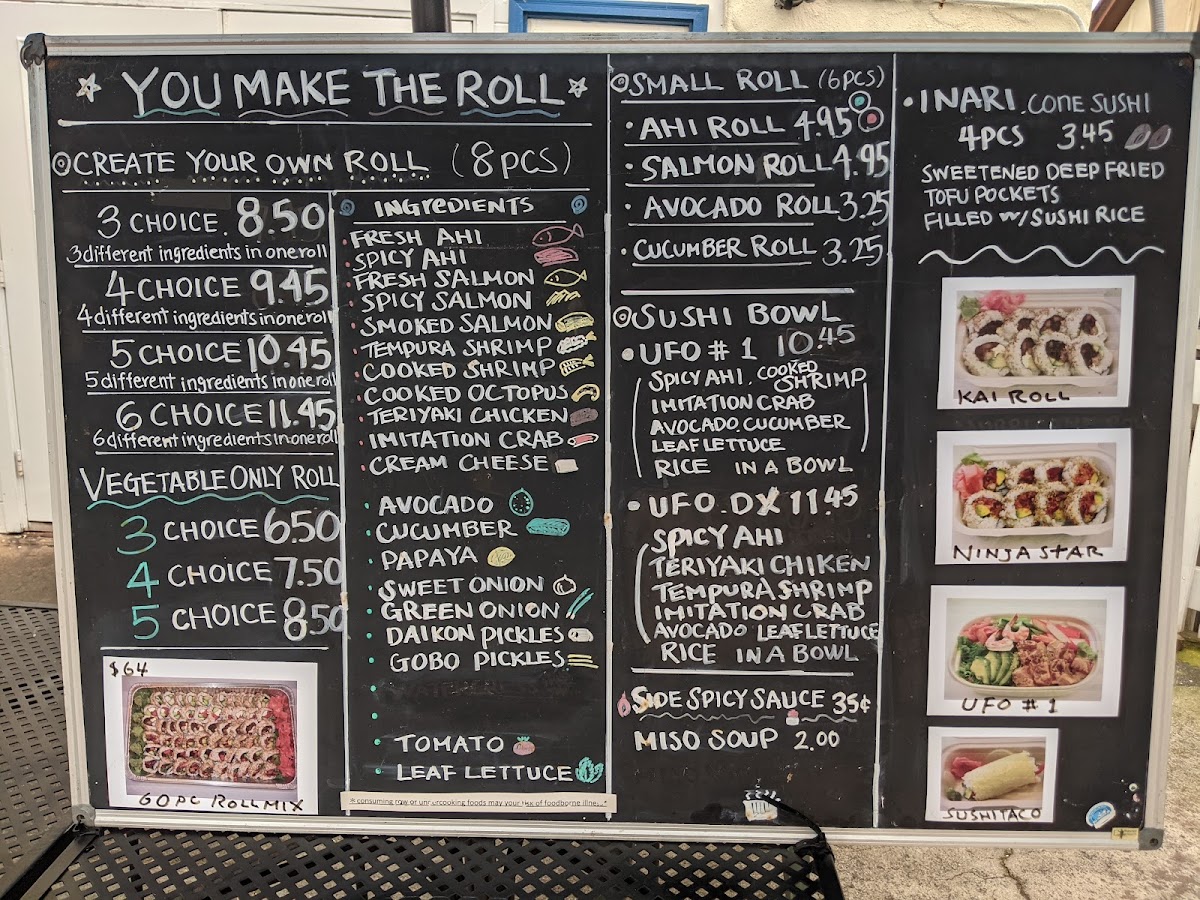 YOU MAKE THE ROLL
CREATE YOUR OWN ROLL (8PCS)
3 CHOICE. 8.50
3 different ingredients in one roll
4 CHOICE 9.45
4 different ingredients in one roll
5 CHOICE 10.45
5 different ingredients in one roll
6 CHOICE 11.45
6 different ingredients in one roll
VEGETABLE ONLY ROLL
3 CHOICE 6.50
4 CHOICE 7.50
5 CHOICE 8.50
$64
60PC ROLL MIX
INGREDIENTS
FRESH AHI
SPICY AHI
FRESH SALMON
SPICY SALMON
SMOKED SALMON
TEMPURA SHRIMP
COOKED SHRIMP
COOKED OCTOPUS
TERIYAKI CHICKEN
IMITATION CRAB
CREAM CHEESE
AVOCADO
CUCUMBER
PAPAYA
SWEET ONION
GREEN ONION
DAIKON PICKLES
GOBO PICKLES
TOMATO
LEAF LETTUCE
* consuming raw or cooking foods may your of foodborne
SMALL ROLL (6PCS)
AHI ROLL 4.95
SALMON ROLL 4.95
AVOCADO ROLL 3.25
CUCUMBER ROLL 3.25
SUSHI BOWL
UFO # 1 10.45
SPICY AHI. COOKED SHRIMP
IMITATION CRAB
AVOCADO. CUCUMBER
LEAF LETTUCE
RICE IN A BOWL
UFO. DX 11.45
SPICY AHI
TERIYAKI CHIKEN
TEMPURA SHRIMP
IMITATION CRAB
AVOCADO LEAF LETTUCE
RICE IN A BOWL
SIDE SPICY SAUCE 35¢
MISO SOUP 2.00
INARI. CONE SUSHI
4PCS 3.45
SWEETENED DEEP FRIED
TOFU POCKETS
FILLED w/ SUSHI RICE
KAI ROLL
NINJA STAR
UFO # 1
SUSHI TACO